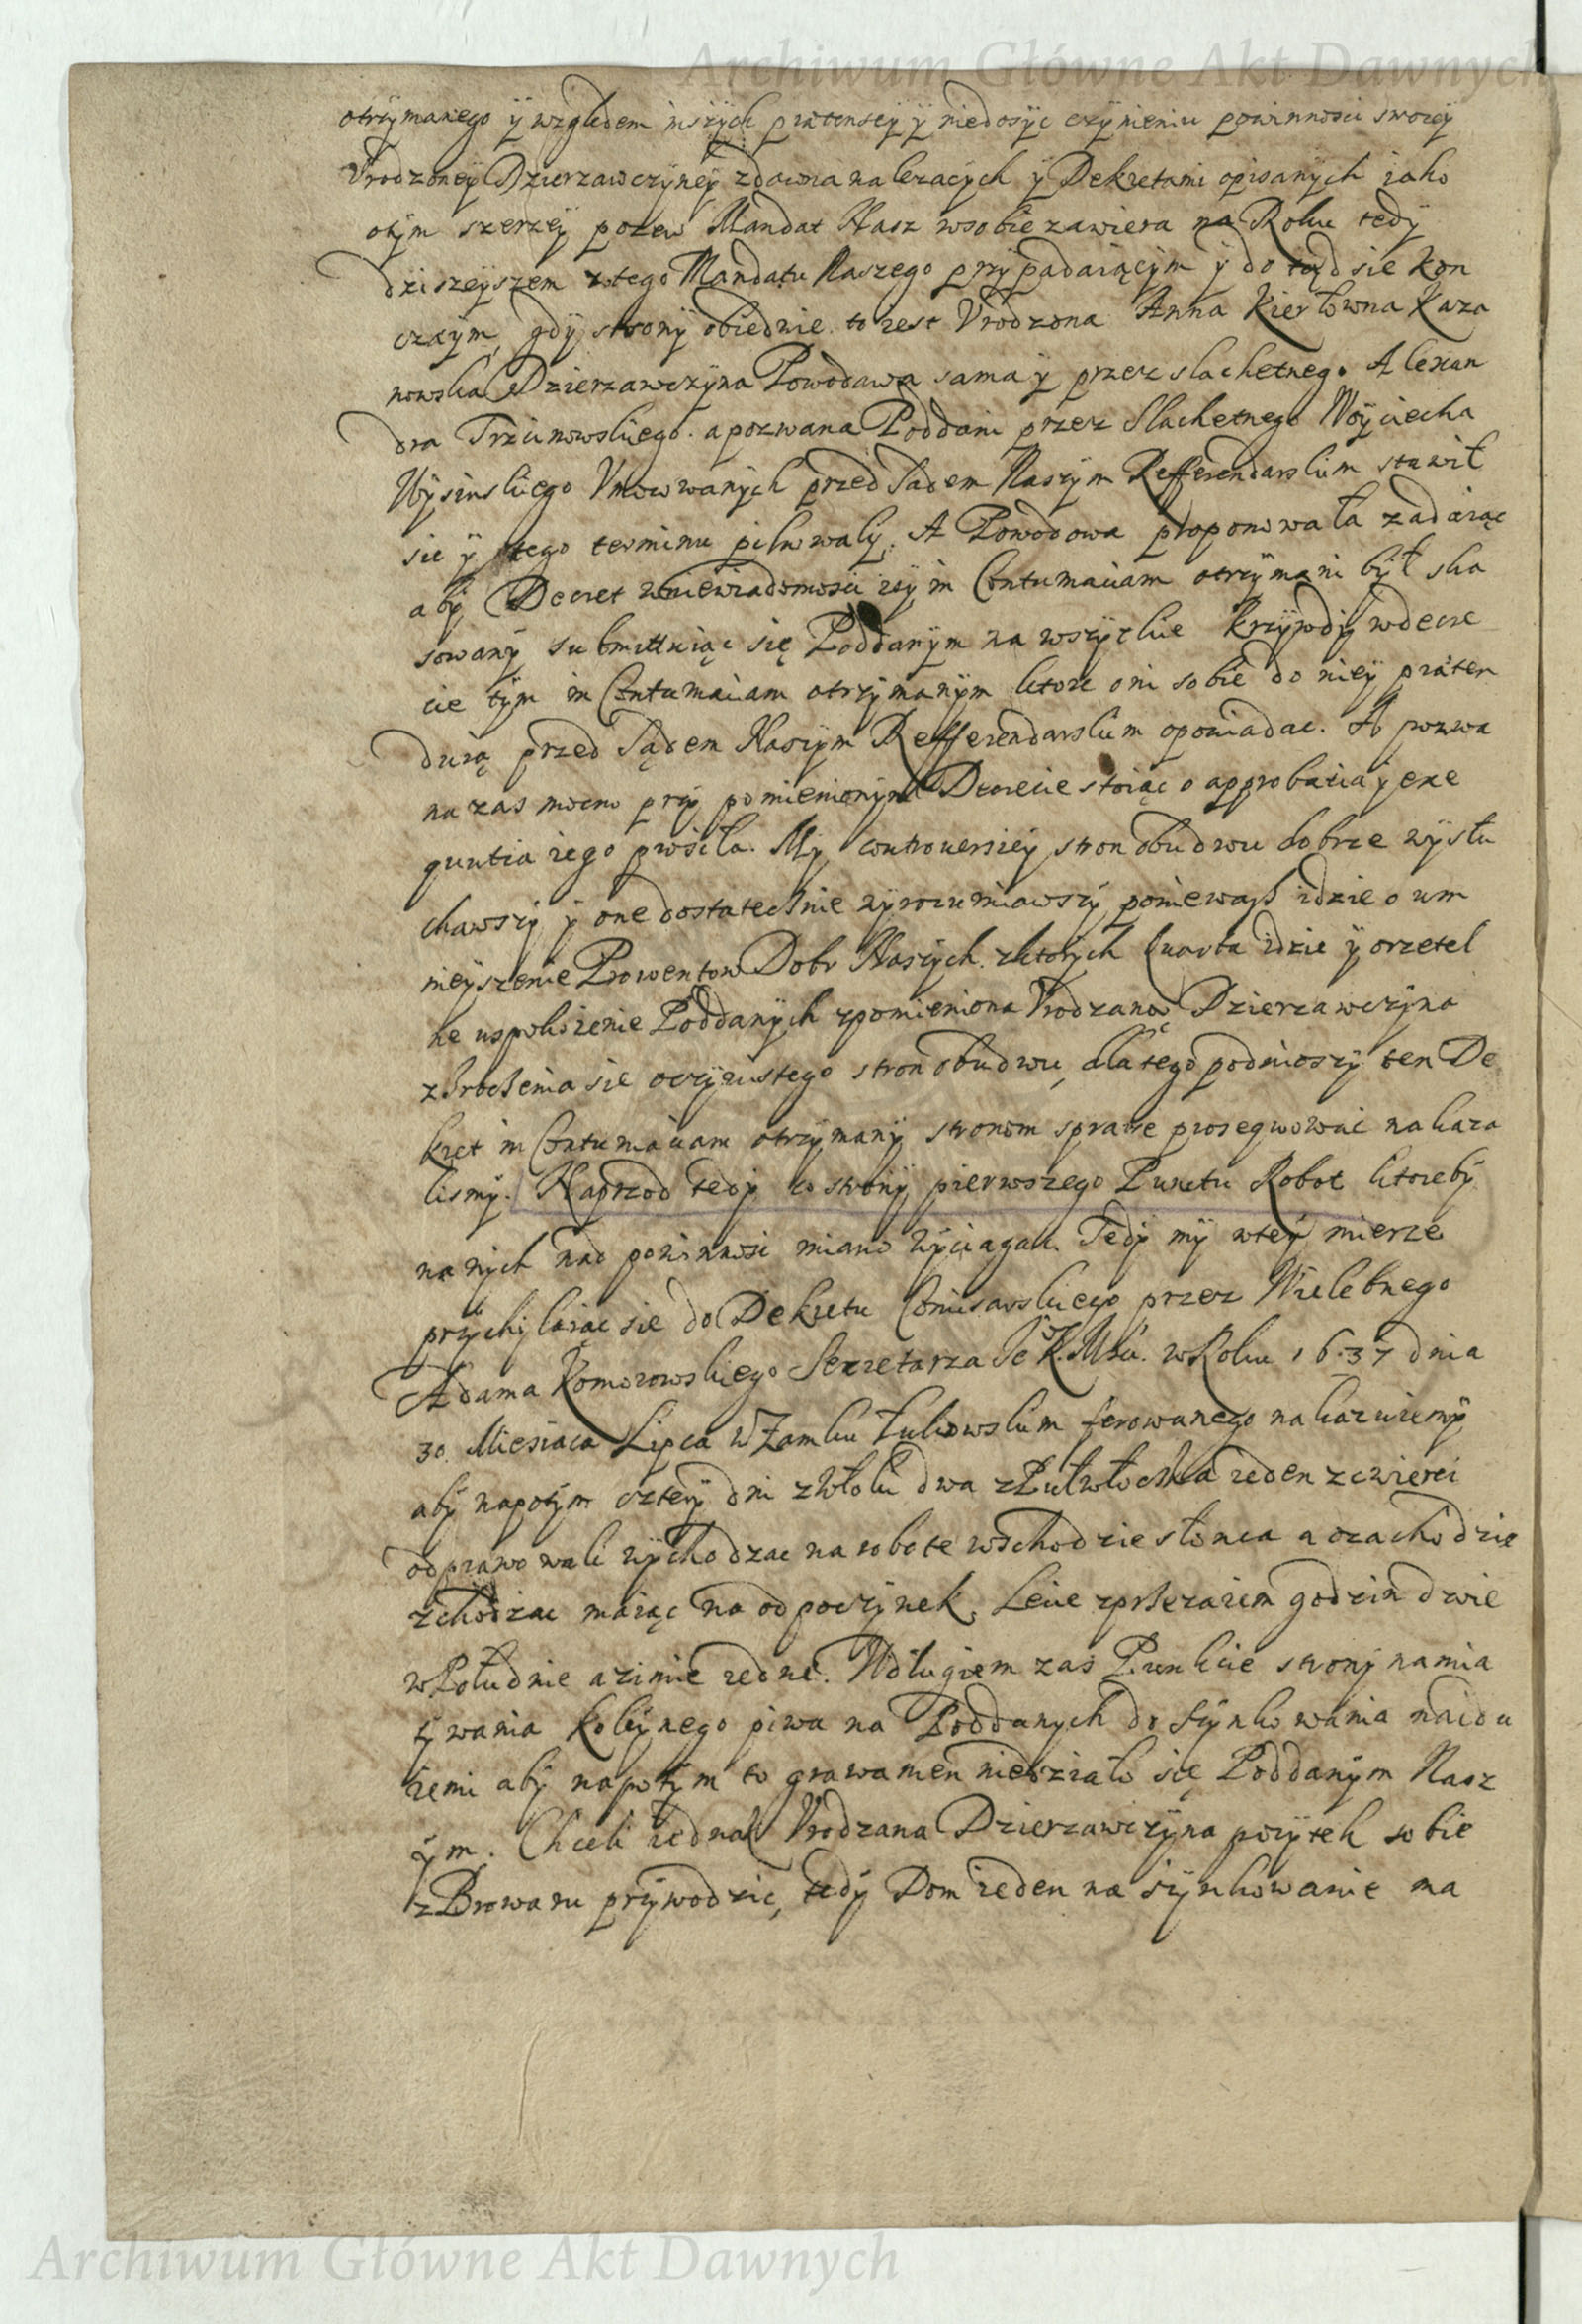 Archiwum Główne Akt Dawnych
otrzymanego y względem inszych praetensey y niedosyc czynieniu powinnosci swoiey
Vrodzoney Dzierzawczyney zdawna nalezacych y Dekretami opisanych iako
otym szerzey pozew Mandat Nasz wsobie zawiera na Roku tedy
dziszeyszem ztego Mandatu Naszego przypadaiącym y do tąd sie kon
czaym, gdy strony obiednie to iest Vrodzona Anna Kierłowna Kaza
nowska Dzierzawczyna Powodowa sama y przez slachetnego Alexan
dra Trzcinowskiego. a pozwana Poddani przez Slachetnego Woyciecha
Wysinskiego Vmocowanych przed Sądem Naszym Refferendarskim stawił
sie y tego terminu pilnowały. A Powodowa proponowała ządaiąc
aby Decret wniewiadomosci iey in Contumaciam otrzymani był ska
sowany submittuiąc się Poddanym na wszytkie krzywdy wdecre
cie tym in Contumaciam otrzymanym ktore oni sobie do niey praeten
duią przed Sądem Naszym Refferendarskim opowiadac. A pozwa
na zas mocno przy pomienionym Decrecie stoiąc o approbatia y exe
quutia iego prosiła. My controuersiey stron obudwu dobrze wysłu
chawszy y one dostatecznie wyrozumiawszy poniewasz idzie o um
nieyszenie Prowentow Dobr Naszych zktorych kwarta idzie y orzetel
ne uspokoienie Poddanych zpomieniona Vrodzaną Dzierzawczyna
zbroczenia sie oczywistego stron obudwu, dlatego podniozszy ten De
kret in Contumaciam otrzymany stronom sprawe prosequowac nakaza
lismy. Naprzod tedy co strony pierwszego Punctu Robot ktoreby
na nych nad powinnosc miano wyciągac. Tedy my wtey mierze
przychylaiąc sie do Dekretu Comisarskiego przez Wielebnego
Adama Komorowskiego Sekretarza Je° K. Mści. w Roku 1637 dnia
30. Miesiaca Lipca w Zamku Łukowskim ferowanego nakazuiemy
aby napotym cztery dni zWłoki dwa zPułwłocka ieden zcwierci
odprawowali wychodzac na robote wschodzie słonca a ozachodzie
zchodzac maiąc na odpoczynek, Lecie zprzezaiem godzin dwie
wPołudnie azimie iedne. Wdrugiem zas Punkcie strony namia
tywania koleynego piwa na Poddanych do szynkowania naidu
iemi aby napotym to grawamen niedziało się Poddanym Nasz
ym. Chceli iednak Vrodzana Dzierzawczyna pozytek sobie
zBrowaru przywodzic, tedy Dom ieden na szynkowanie ma
Archiwum Główne Akt Dawnych